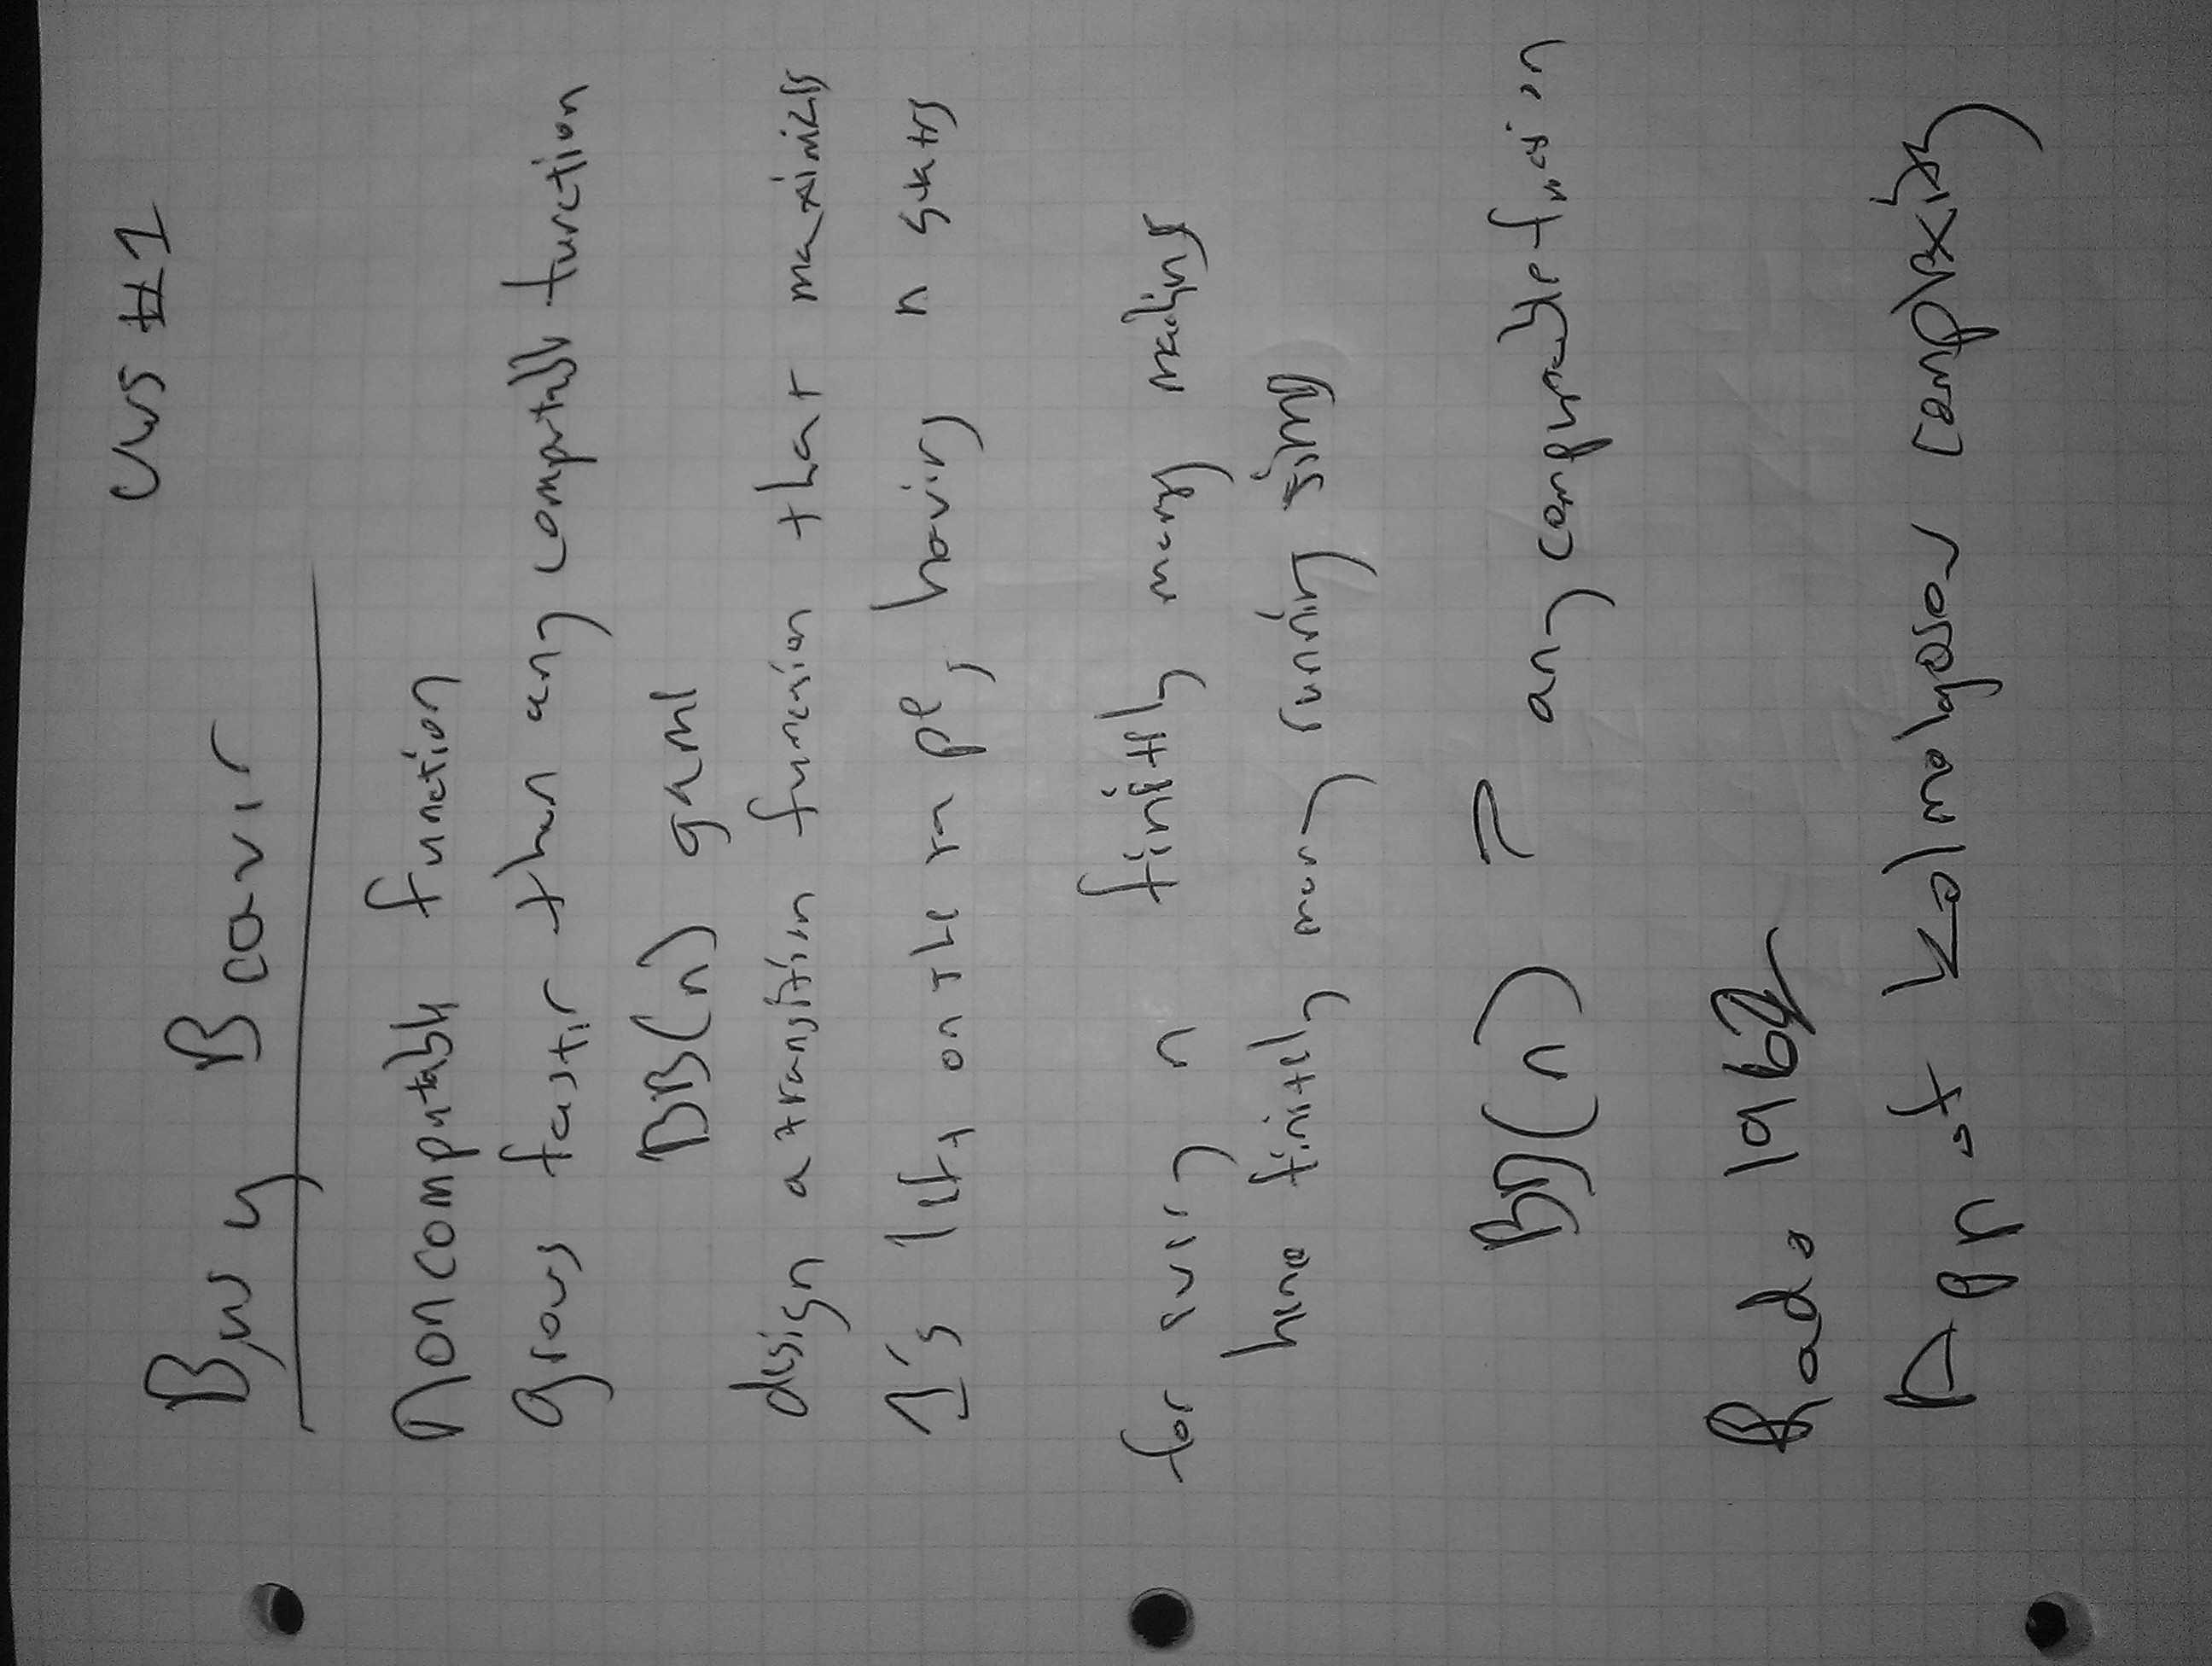 CWS #1
Busy Beaver
noncomputable function
grows faster than any computable function
BB(n) game
design a transition function that maximizes
1's left on the tape, having n states
for every n finitely many machines
hence finitely many running
BB(n) > any computable function
Rado 1962
Depn of Kolmolgosov complexity